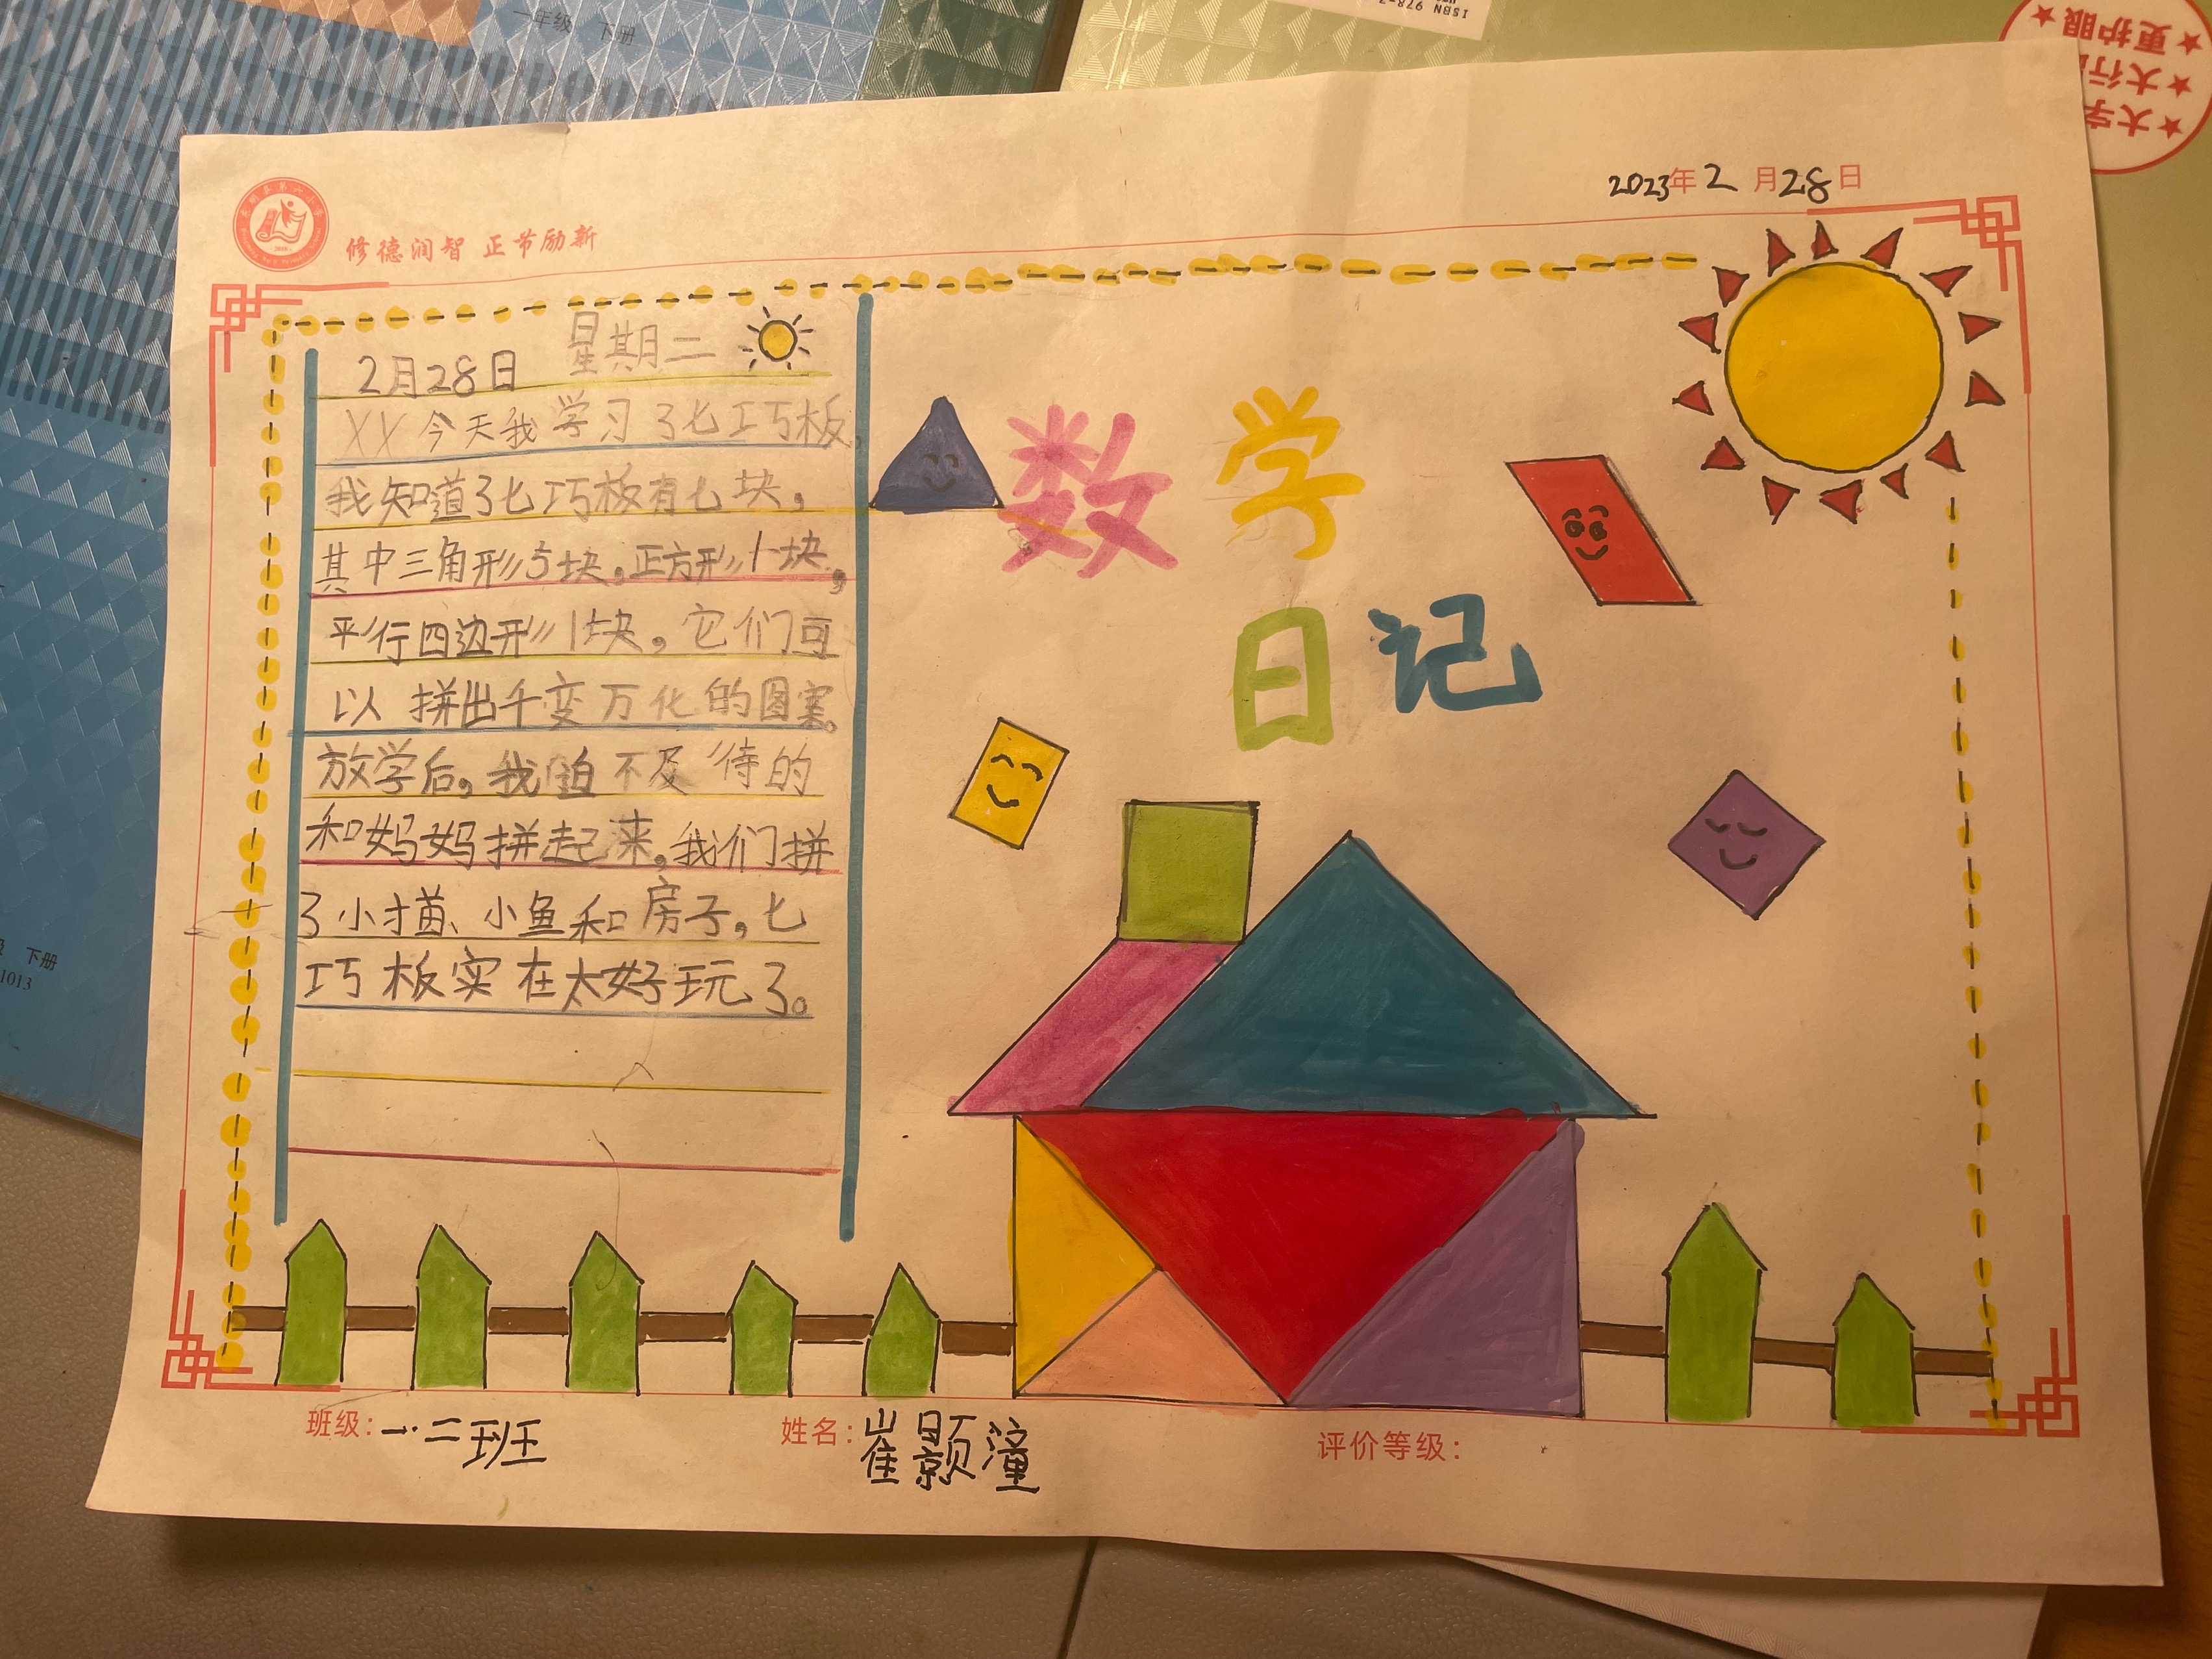 一年级 下册
ISBN 978-7
★更护眼★
★大行
★大字
修德润智 正节励新
2023年2月28日
2月28日 星期二
XX今天我学习了七巧板,
我知道了七巧板有七块,
其中三角形5块,正方形1块,
平行四边形1块。它们可
以拼出千变万化的图案。
放学后,我迫不及待的
和妈妈拼起来,我们拼
了小猫、小鱼和房子,七
巧板实在太好玩了。
数学
日记
下册
1013
班级:一.二班
姓名:崔颢潼
评价等级: